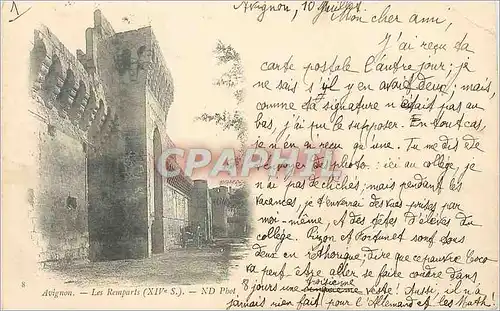 1
Avignon, 10 Juillet.
Mon cher ami,
J'ai reçu ta
carte postale l'autre jour; je
ne sais s'il y en avait deux; mais,
comme ta signature n'était pas au
bas, j'ai pu le supposer. En tout cas,
je n'en ai reçu qu'une. Tu me dis de
t'envoyer des photo: ici au collège, je
n'ai pas de clichés; mais pendant les
vacances, je t'enverrai des vues prises par
moi-même, et des têtes d'élèves du
collège. et Fortunet sont tous
deux en rethorique; dire que ce pauvre Coco
va peut être aller se faire coudre dans
8 jours une troisième veste! Aussi, il n'a
jamais rien fait pour l'Allemand et les Math!
CPARAMA.COM
8
Avignon. — Les Remparts (XIVe S.). — ND Phot